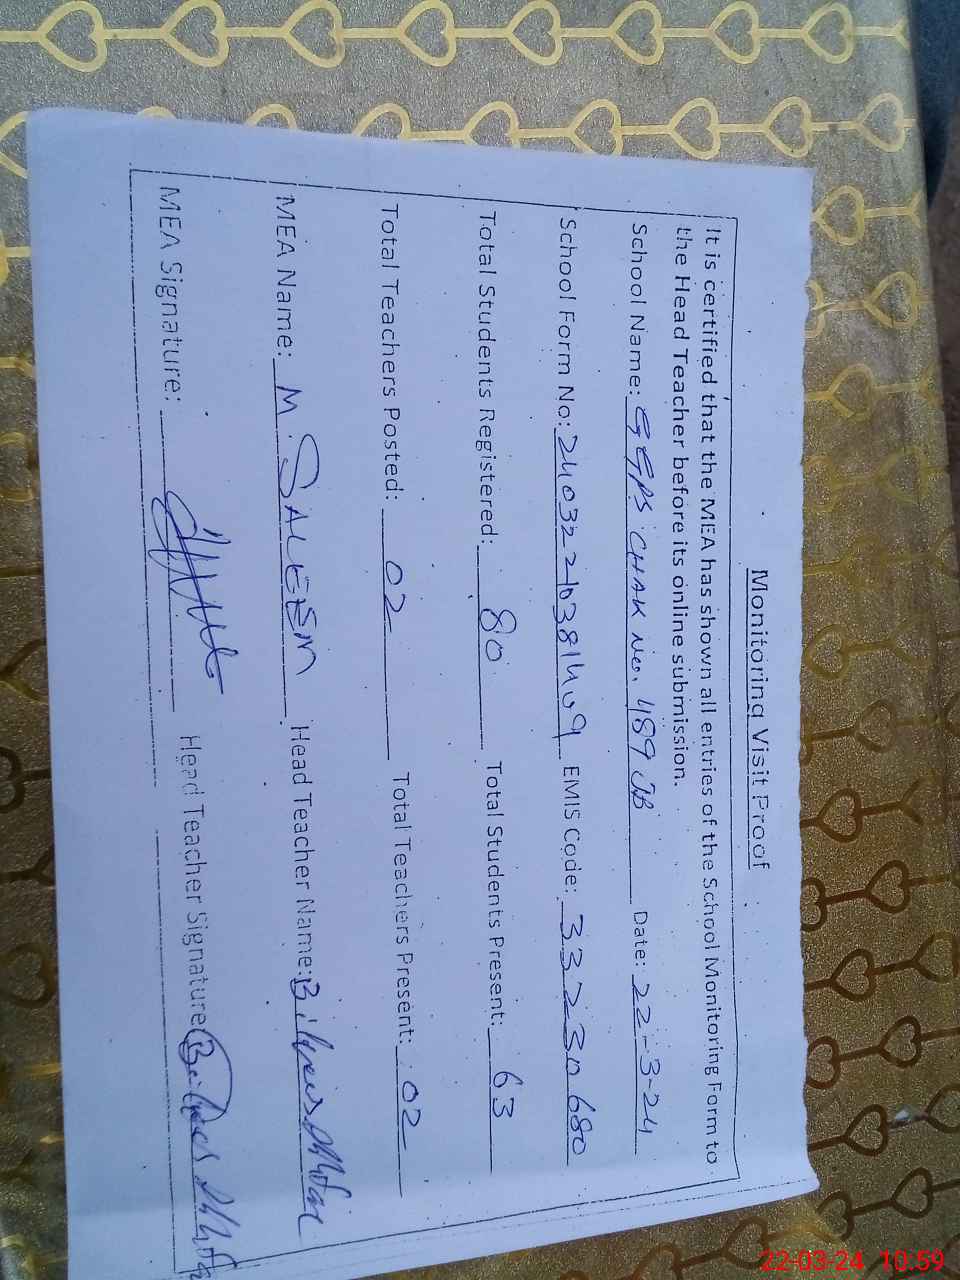 Monitoring Visit Proof
It is certified that the MEA has shown all entries of the School Monitoring Form to
the Head Teacher before its online submission.
School Name: GGPS CHAK No. 489 JB Date: 22-3-24
School Form No: EMIS Code: 33230680
Total Students Registered: 80 Total Students Present: 63
Total Teachers Posted: 02 Total Teachers Present: 02
MEA Name: M. SALEEM Head Teacher Name:
MEA Signature: Head Teacher Signature
22-03-24 10:59